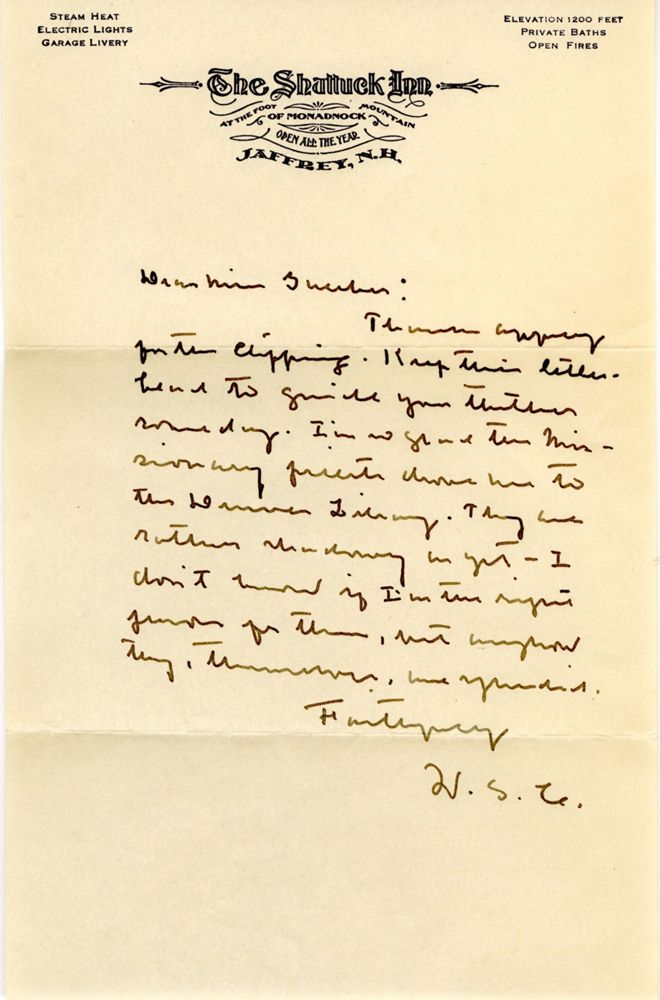 STEAM HEAT
ELECTRIC LIGHTS
GARAGE LIVERY
ELEVATION 1200 FEET
PRIVATE BATHS
OPEN FIRES
The Shattuck Inn
AT THE FOOT OF MONADNOCK MOUNTAIN
OPEN ALL THE YEAR
JAFFREY, N.H.
Dear Miss :
Thank you
for the clipping. Keep this letter-
head to guide you thither
some day. I'm so glad the Mis-
sionary priests drove me to
the Denver Library. They are
rather shadowy as yet - I
don't know if I'm the right
person for them, but anyhow
they, themselves, are splendid.
Faithfully
W. S. C.